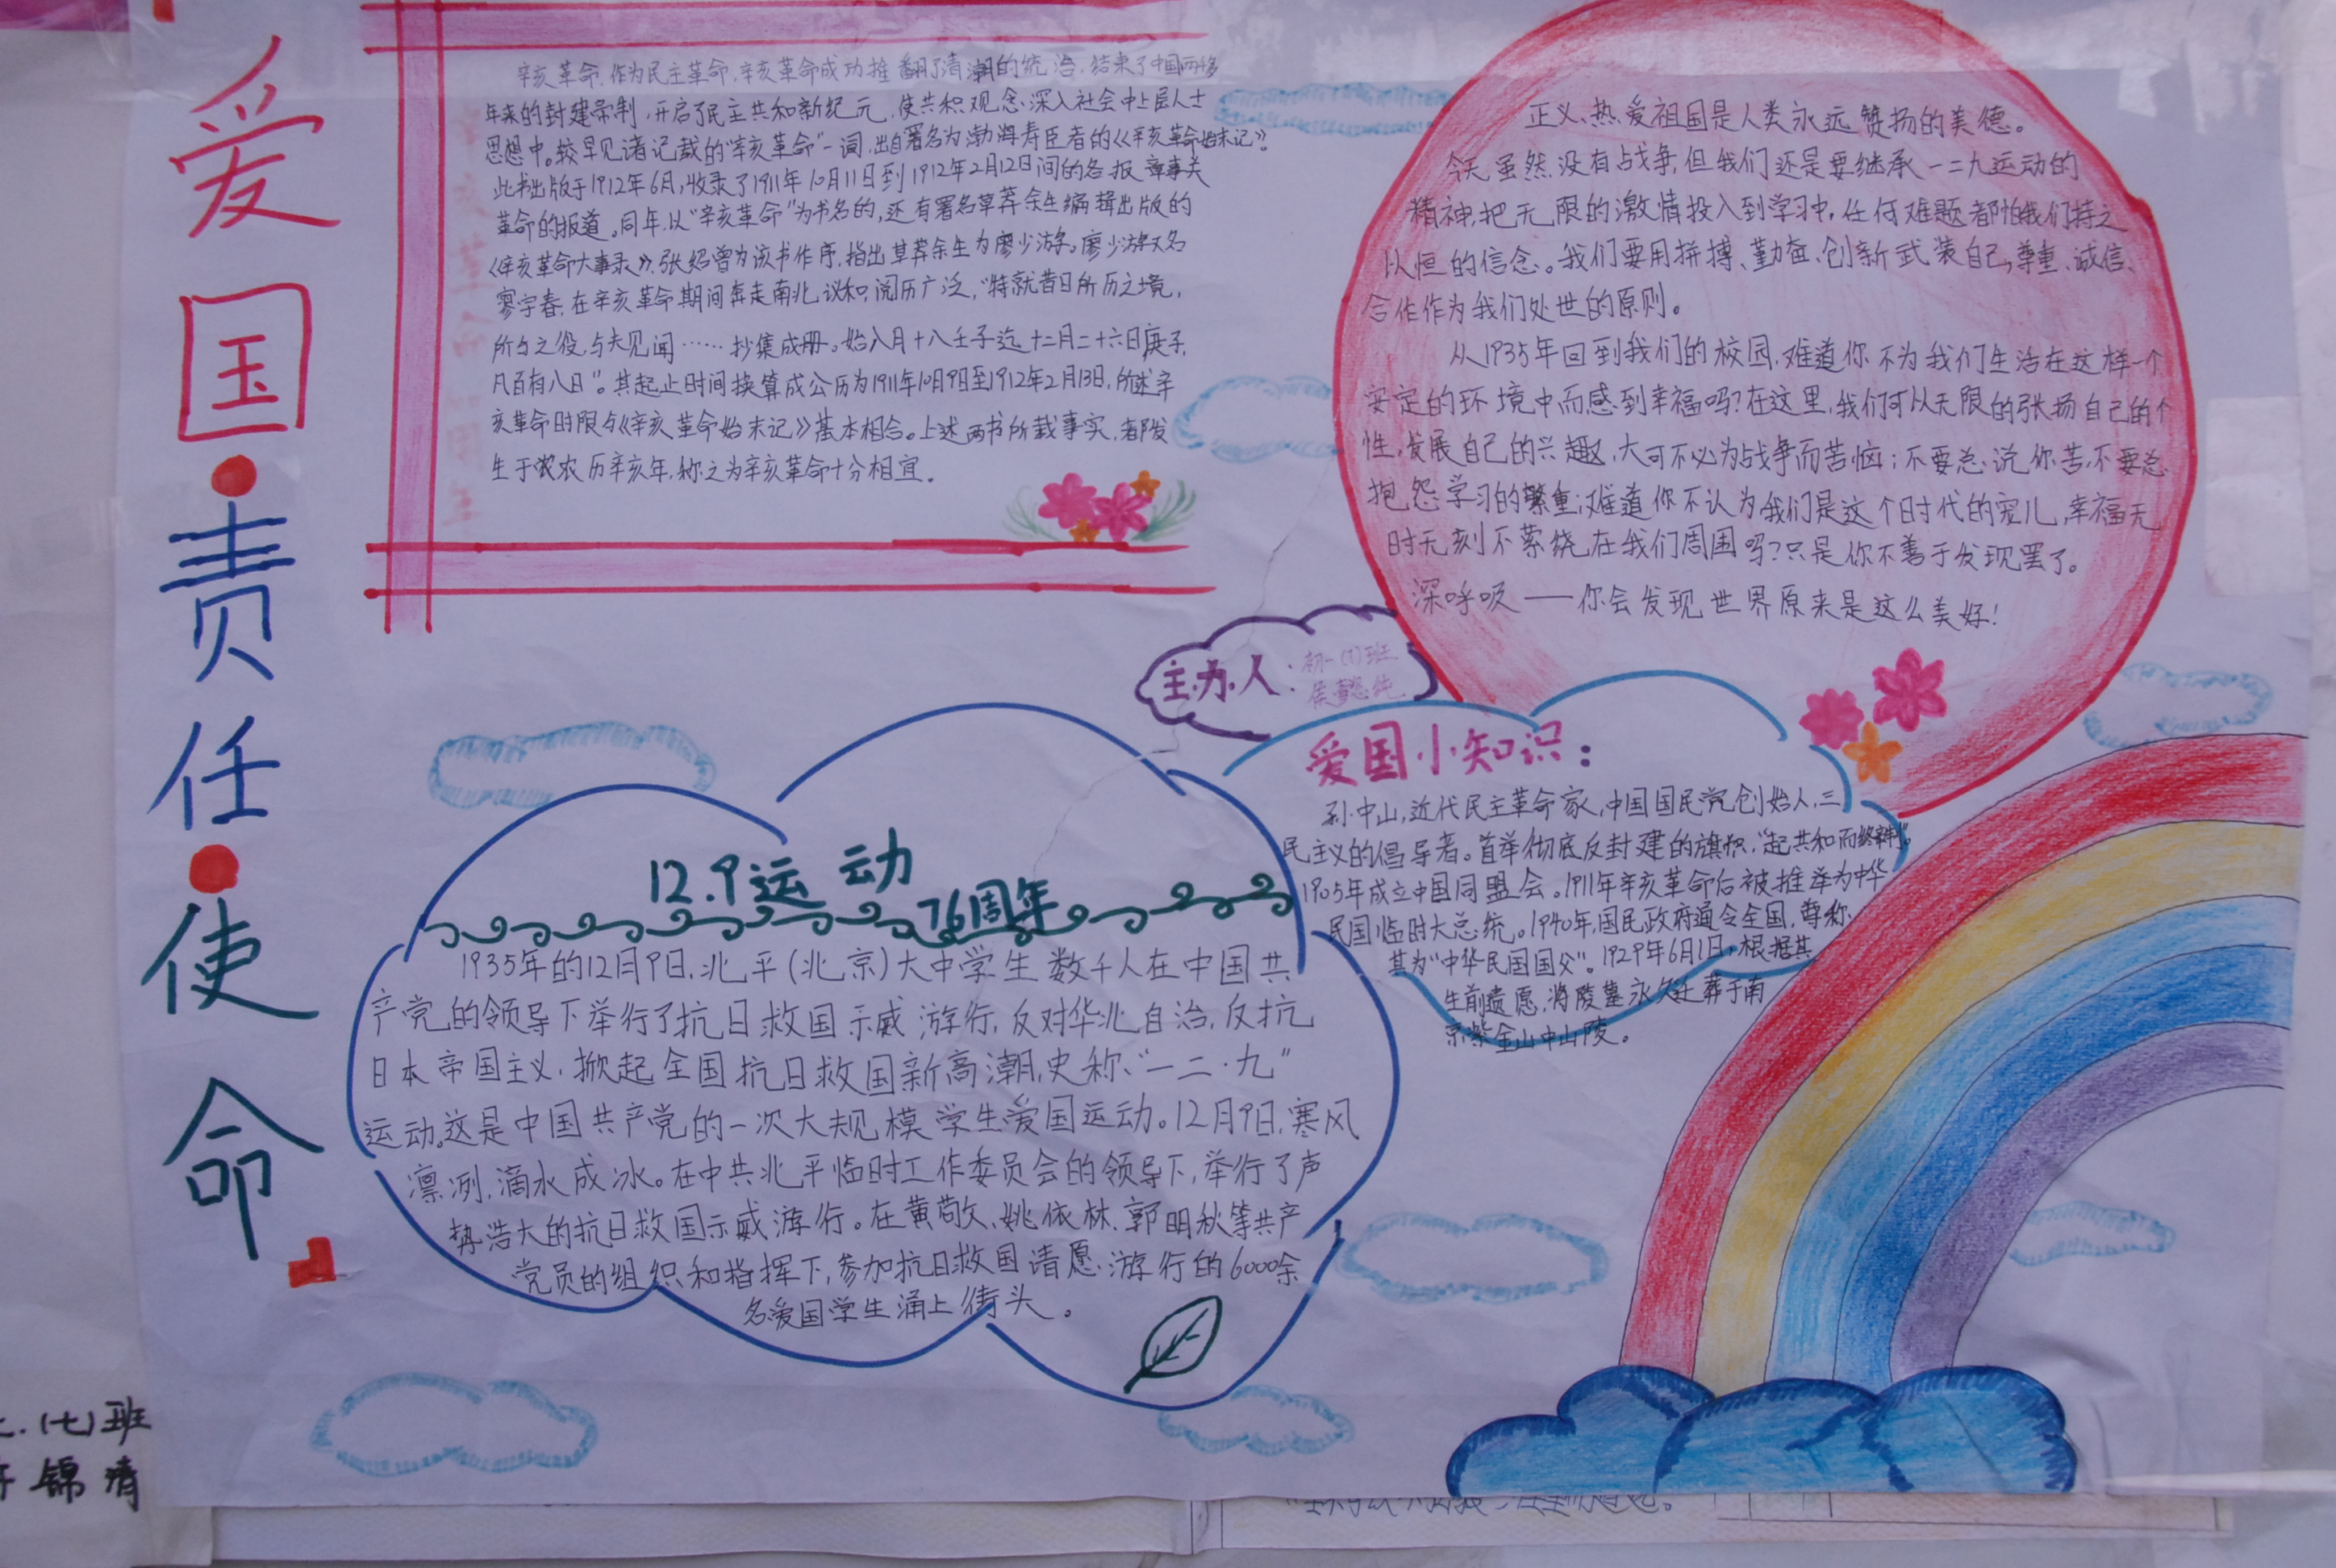 爱国·责任·使命
辛亥革命,作为民主革命,辛亥革命成功推翻了清潮的统治,结束了中国两千多
年来的封建帝制,开启了民主共和新纪元,使共和观念深入社会中上层人士
思想中。较早见诸记载的“辛亥革命”一词,出自署名为渤海寿臣者的《辛亥革命始末记》。
此书出版于1912年6月,收录了1911年10月11日到1912年2月12日间的各报章事关
革命的报道。同年,以“辛亥革命”为书名的,还有署名草莽余生编辑出版的
《辛亥革命大事录》,张绍曾为该书作序,指出草莽余生为廖少游。廖少游又名
廖宇春,在辛亥革命期间奔走南北议和,阅历广泛,“特就昔日所历之境,
所与之役,与夫见闻……抄集成册。始八月十八壬子迄十二月二十六日庚子,
凡百有八日”。其起止时间换算成公历为1911年10月9日至1912年2月13日,所述辛
亥革命时限与《辛亥革命始末记》基本相合。上述两书所载事实,都发
生于农历辛亥年,称之为辛亥革命十分相宜。
正义、热爱祖国是人类永远赞扬的美德。
今天,虽然没有战争,但我们还是要继承一二九运动的
精神,把无限的激情投入到学习中,任何难题都怕我们持之
以恒的信念。我们要用拼搏、勤奋、创新武装自己,尊重、诚信、
合作作为我们处世的原则。
从1935年回到我们的校园,难道你不为我们生活在这样一个
安定的环境中而感到幸福吗?在这里,我们可以无限的张扬自己的个
性,发展自己的兴趣,大可不必为战争而苦恼;不要总说你苦,不要总
抱怨学习的繁重;难道你不认为我们是这个时代的宠儿,幸福无
时无刻不萦绕在我们周围吗?只是你不善于发现罢了。
深呼吸——你会发现世界原来是这么美好!
主办人:初一(7)班
爱国小知识:
孙中山,近代民主革命家,中国国民党创始人,三
民主义的倡导者。首举彻底反封建的旗帜,“起共和而终帝制”。
1905年成立中国同盟会。1911年辛亥革命后被推举为中华
民国临时大总统。1940年,国民政府通令全国,尊称
其为“中华民国国父”。1929年6月1日,根据其
生前遗愿,将陵墓永久迁葬于南
京紫金山中山陵。
12.9运动
76周年
1935年的12月9日,北平(北京)大中学生数千人在中国共
产党的领导下举行了抗日救国示威游行,反对华北自治,反抗
日本帝国主义,掀起全国抗日救国新高潮,史称“一二·九”
运动。这是中国共产党的一次大规模学生爱国运动。12月9日,寒风
凛冽,滴水成冰。在中共北平临时工作委员会的领导下,举行了声
势浩大的抗日救国示威游行。在黄敬、姚依林、郭明秋等共产
党员的组织和指挥下,参加抗日救国请愿游行的6000余
名爱国学生涌上街头。
(七)班
锦清